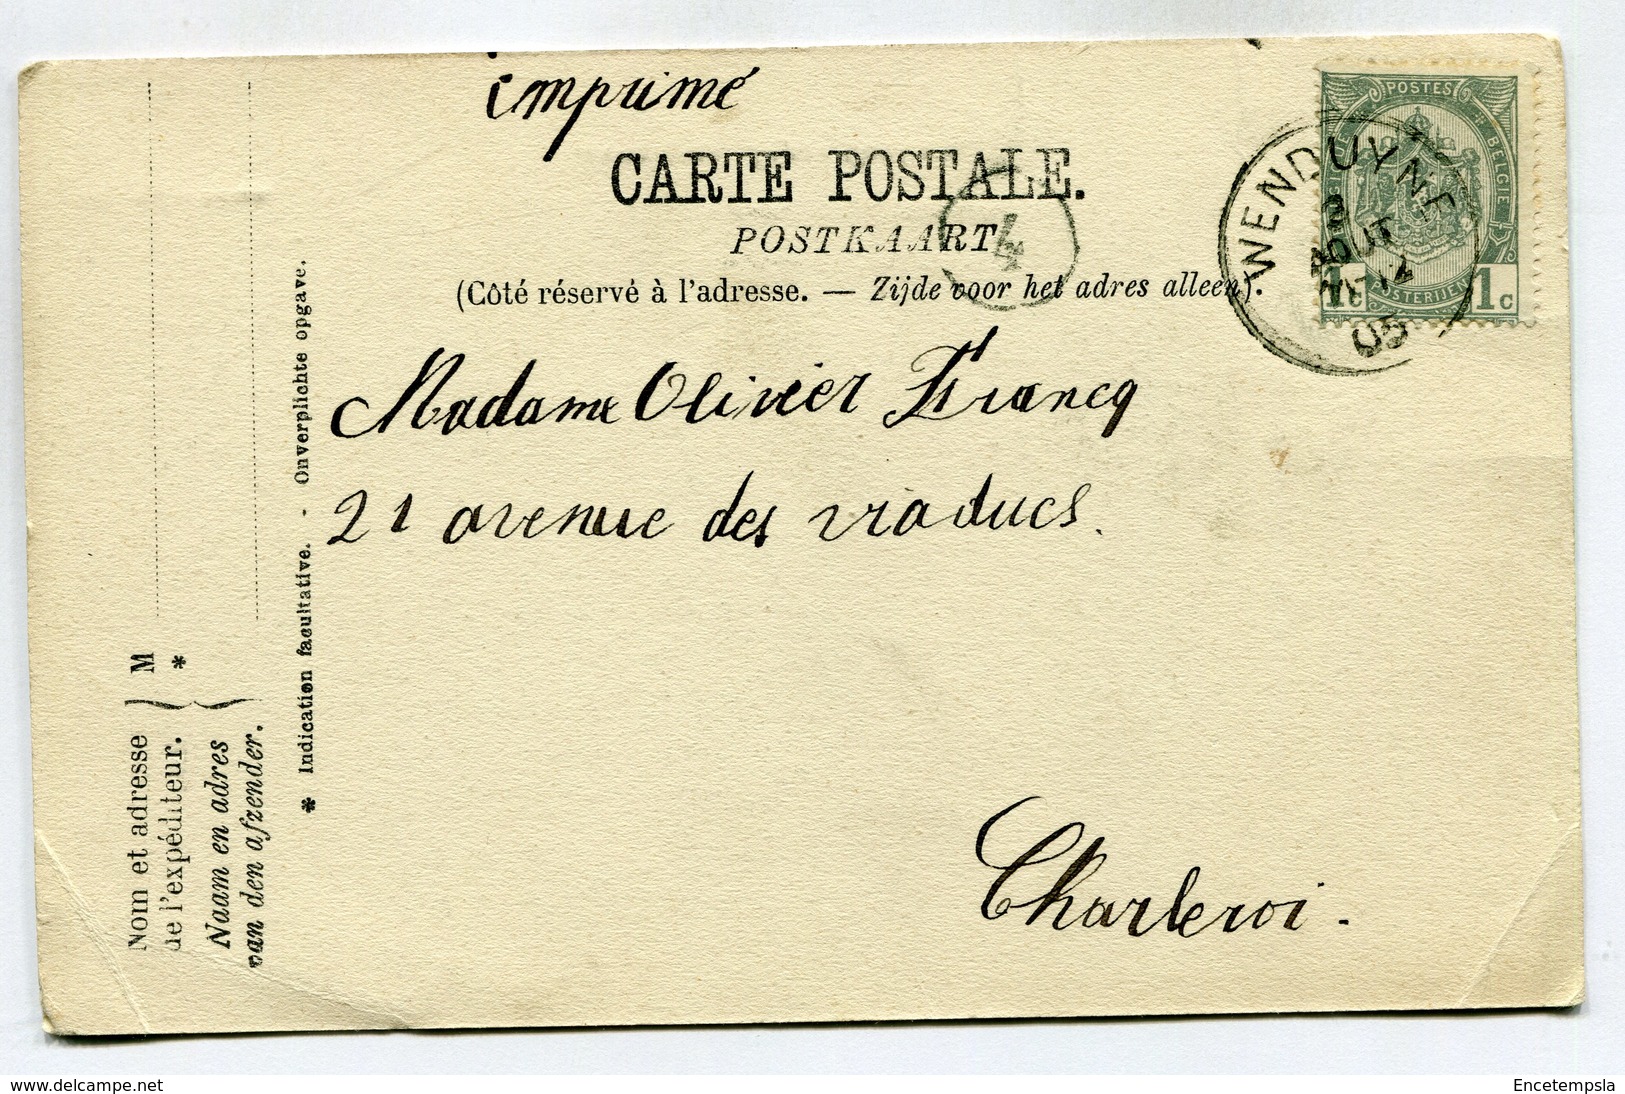 imprimé
CARTE POSTALE.
POSTKAART
(Côté réservé à l'adresse. — Zijde voor het adres alleen).
4
POSTES
BELGIE
1c 1c
WENDUYNE
AOUT
05
Madame Olivier Francq
21 avenue des viaducs.
Charleroi.
Nom et adresse
de l'expéditeur.
Naam en adres
van den afzender.
M
*
* Indication facultative. - Onverplichte opgave.
www.delcampe.net
Encetempsla